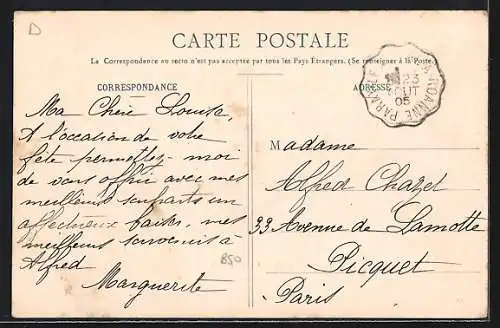 D
CARTE POSTALE
La Correspondance au recto n'est pas acceptée par tous les Pays Étrangers. (Se renseigner à la Poste.)
CORRESPONDANCE
ADRESSE
23
AOUT
05
Ma Chère Louise,
A l'occasion de votre
fête permettez-moi
de vous offrir avec mes
meilleurs souhaits un
affectueux baiser, mes
meilleurs souvenirs à
Alfred
Marguerite
850
Madame
Alfred Chazel
33 Avenue de Lamotte
Picquet
Paris